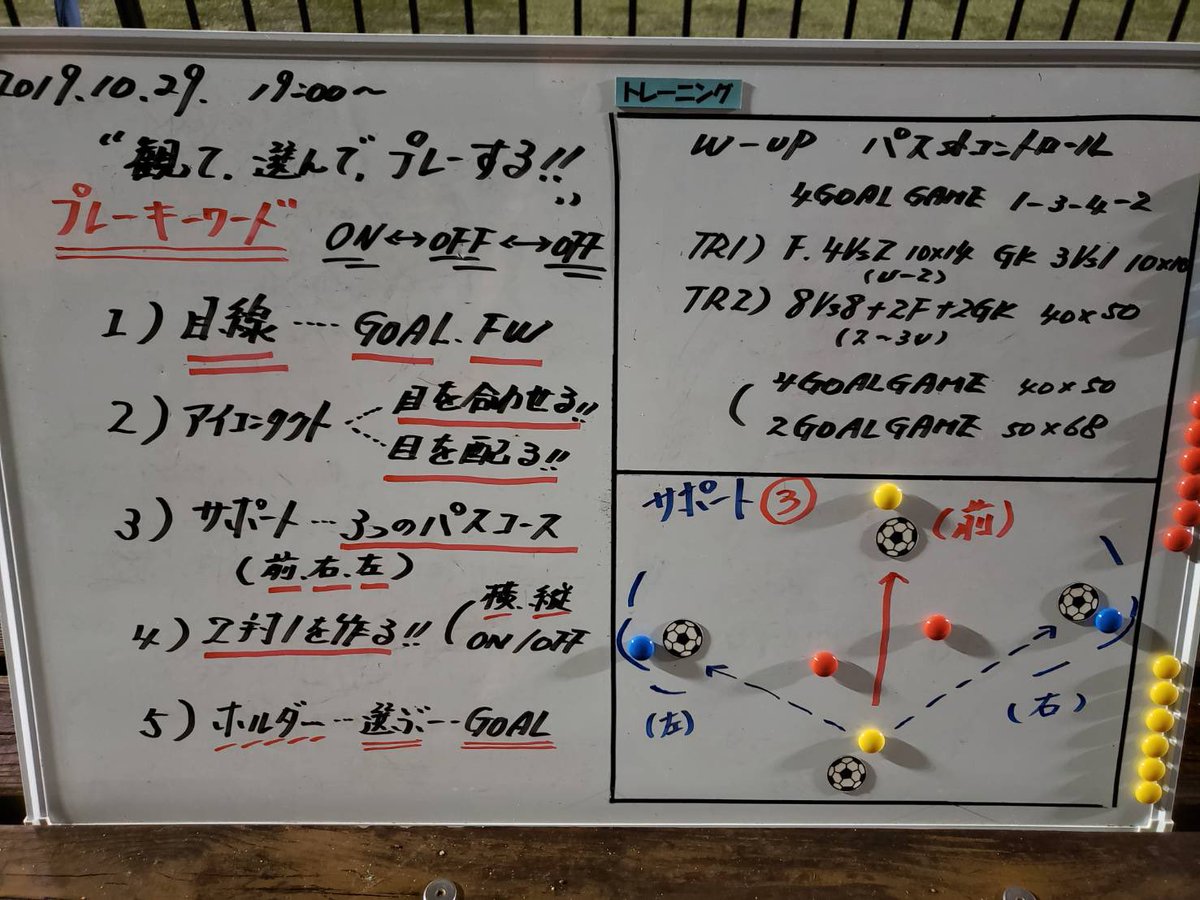 2019.10.29. 19:00〜
“観て、選んで、プレーする!!”
プレーキーワード
ON↔OFF↔OFF
1) 目線…… GOAL. FW
2) アイコンタクト
目を合わせる!!
目を配る!!
3) サポート…3つのパスコース
(前.右.左)
4) 2対1を作る!!
(横.縦
ON/OFF
5) ホルダー…選ぶ…GOAL
トレーニング
W-UP パス&コントロール
4GOAL GAME 1-3-4-2
TR1) F. 4VS2 10×14 GK 3VS1 10×10
(U-2)
TR2) 8VS8+2F+2GK 40×50
(2〜3U)
(4GOAL GAME 40×50
2GOAL GAME 50×68
サポート③
(前)
(左)
(右)